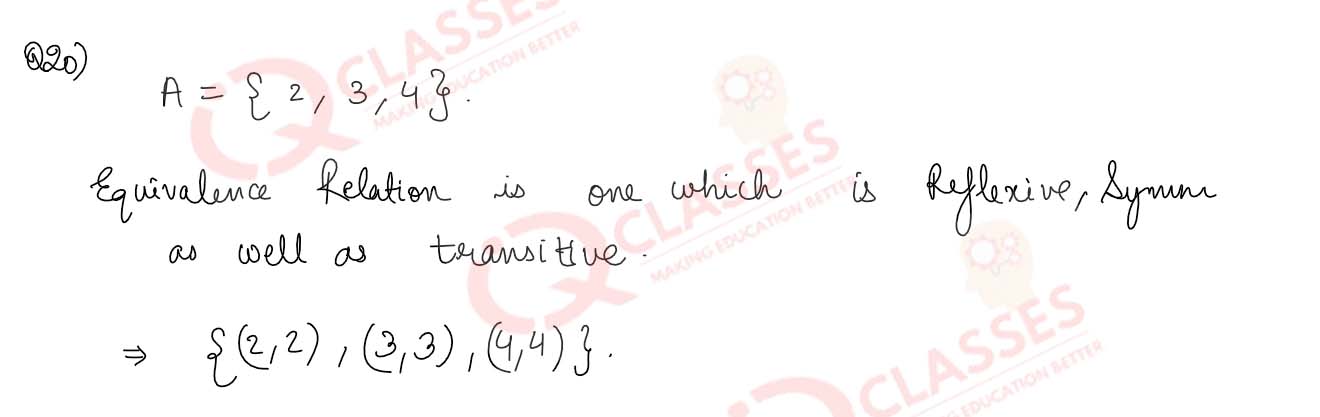 Q20)
A = { 2, 3, 4}.
Equivalence Relation is one which is Reflexive, Symm
as well as transitive.
⇒ {(2,2), (3,3), (4,4)}.
CLASSES
MAKING EDUCATION BETTER
CLASSES
MAKING EDUCATION BETTER
CLASSES
EDUCATION BETTER